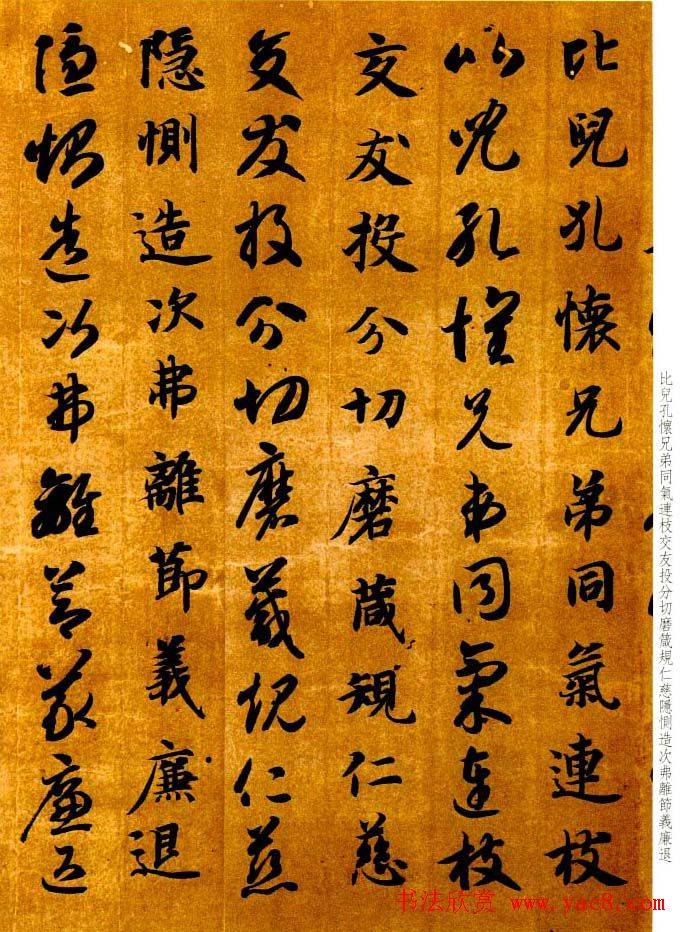 比兒孔懷兄弟同氣連枝
比兒孔懷兄弟同氣連枝
交友投分切磨箴規仁慈
交友投分切磨箴規仁慈
隱惻造次弗離節義廉退
隱惻造次弗離節義廉退
比兒孔懷兄弟同氣連枝交友投分切磨箴規仁慈隱惻造次弗離節義廉退
书法欣赏 www.yac8.com